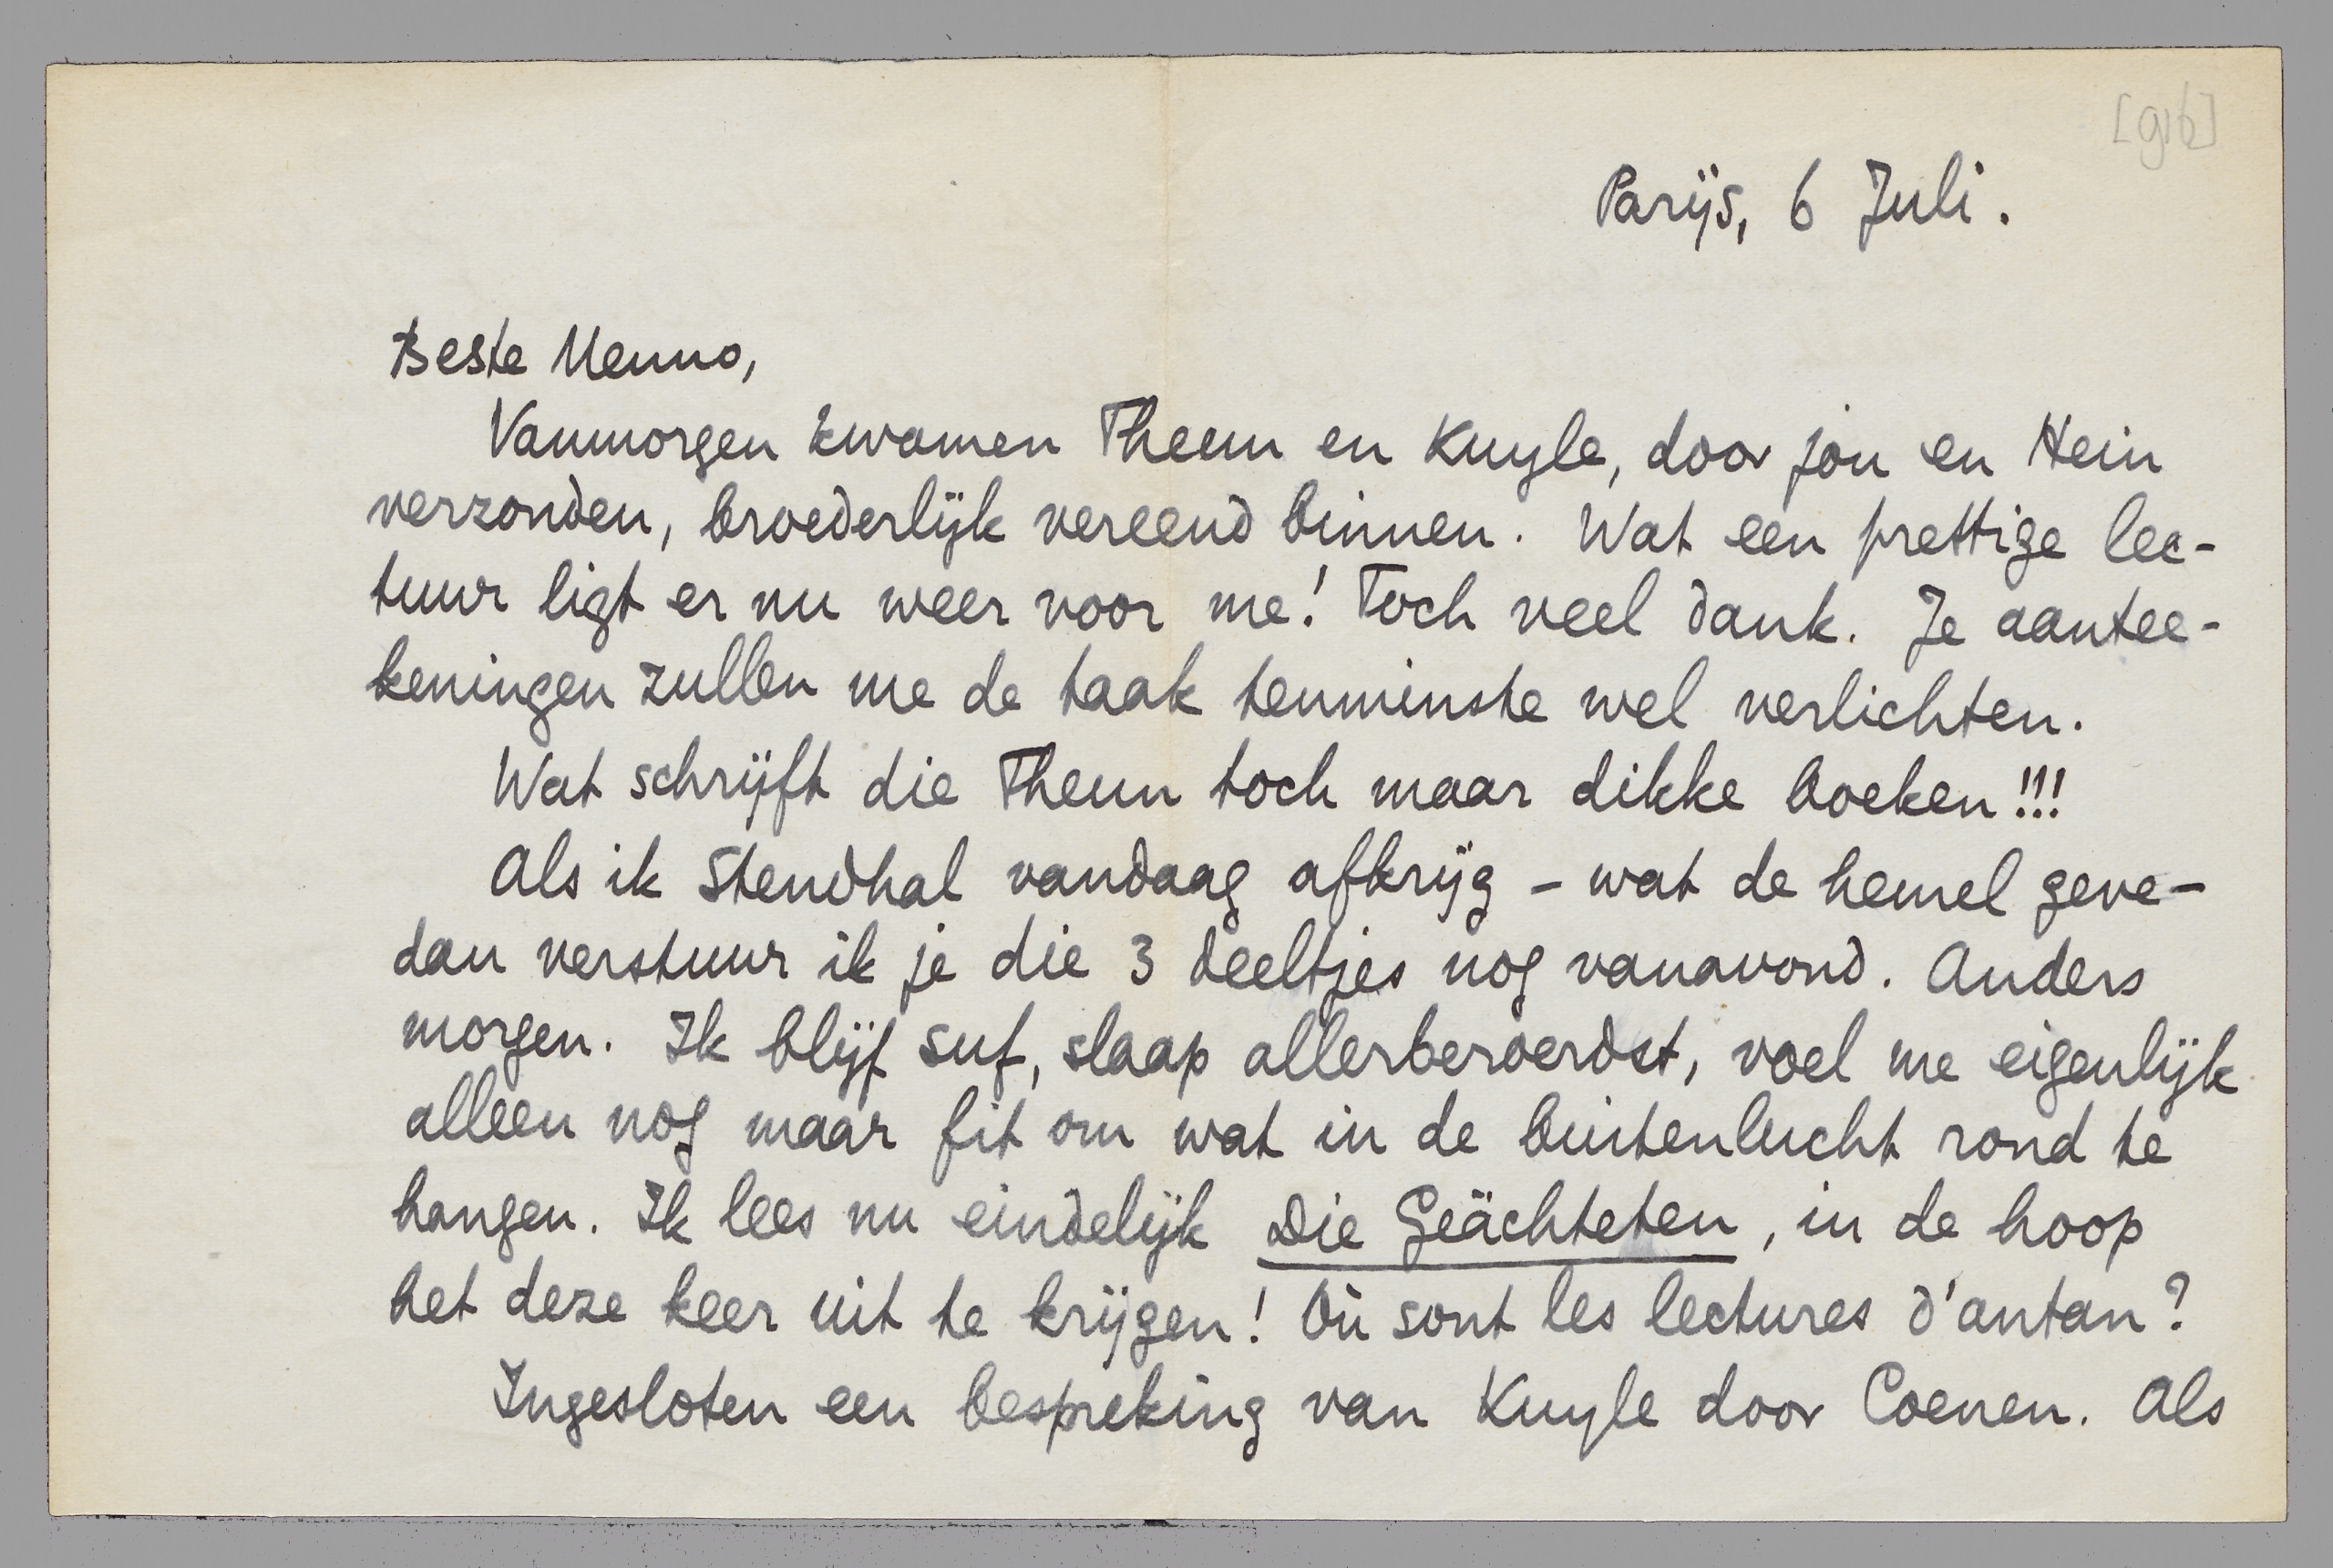 [916]
Parijs, 6 Juli.
Beste Menno,
Vanmorgen kwamen Theun en Kuyle, door jóu en Hein
verzonden, broederlijk vereend binnen. Wat een prettige lec-
tuur ligt er nu weer voor me! Toch veel dank. Je aantee-
keningen zullen me de taak tenminste wel verlichten.
Wat schrijft die Theun toch maar dikke boeken!!!
Als ik Stendhal vandaag afkrijg - wat de hemel geve -
dan verstuur ik je die 3 deeltjes nog vanavond. Anders
morgen. Ik blijf suf, slaap allerberoerdst, voel me eigenlijk
alleen nog maar fit om wat in de buitenlucht rond te
hangen. Ik lees nu eindelijk Die Geächteten, in de hoop
het deze keer uit te krijgen! Où sont les lectures d'antan?
Ingesloten een bespreking van Kuyle door Coenen. Als